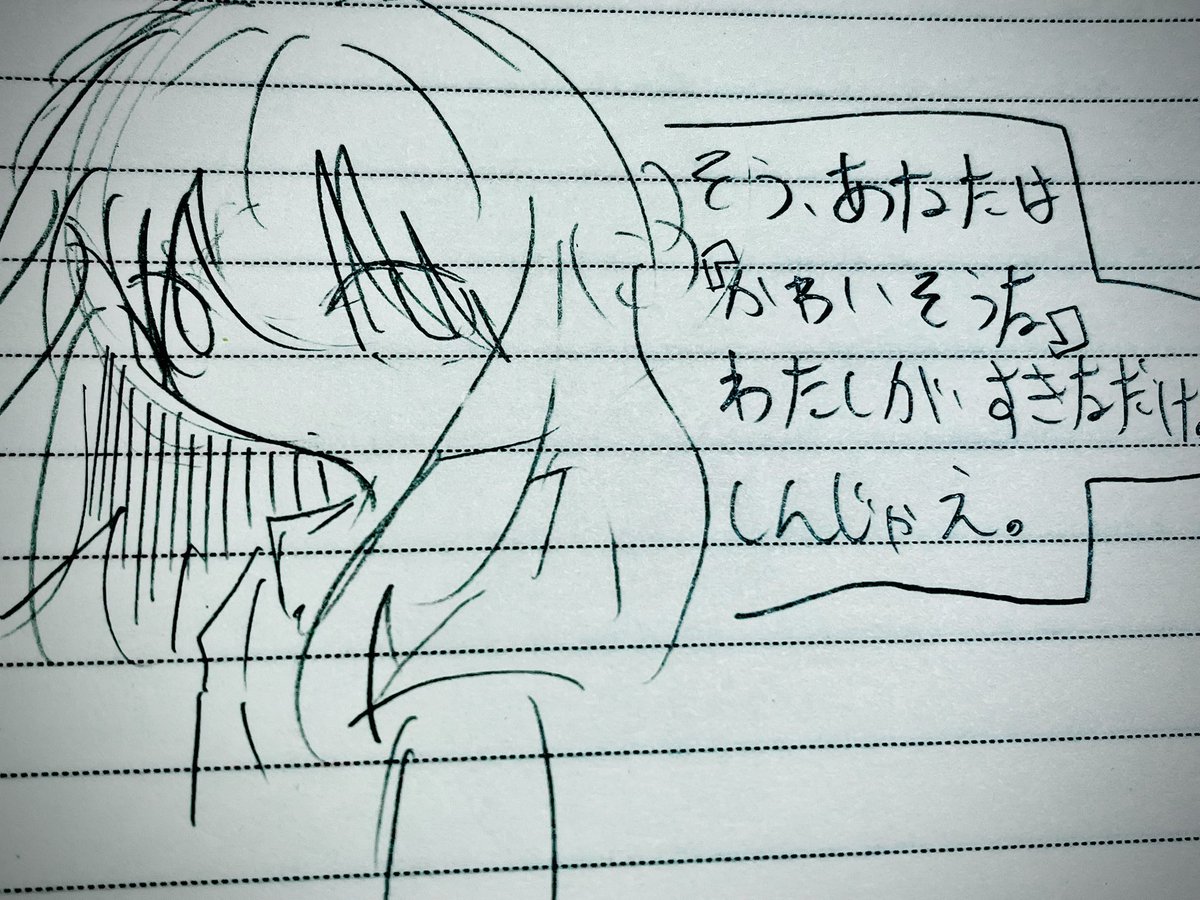 そう、あなたは
『かわいそうな』
わたしが、すきなだけ。
しんじゃえ。